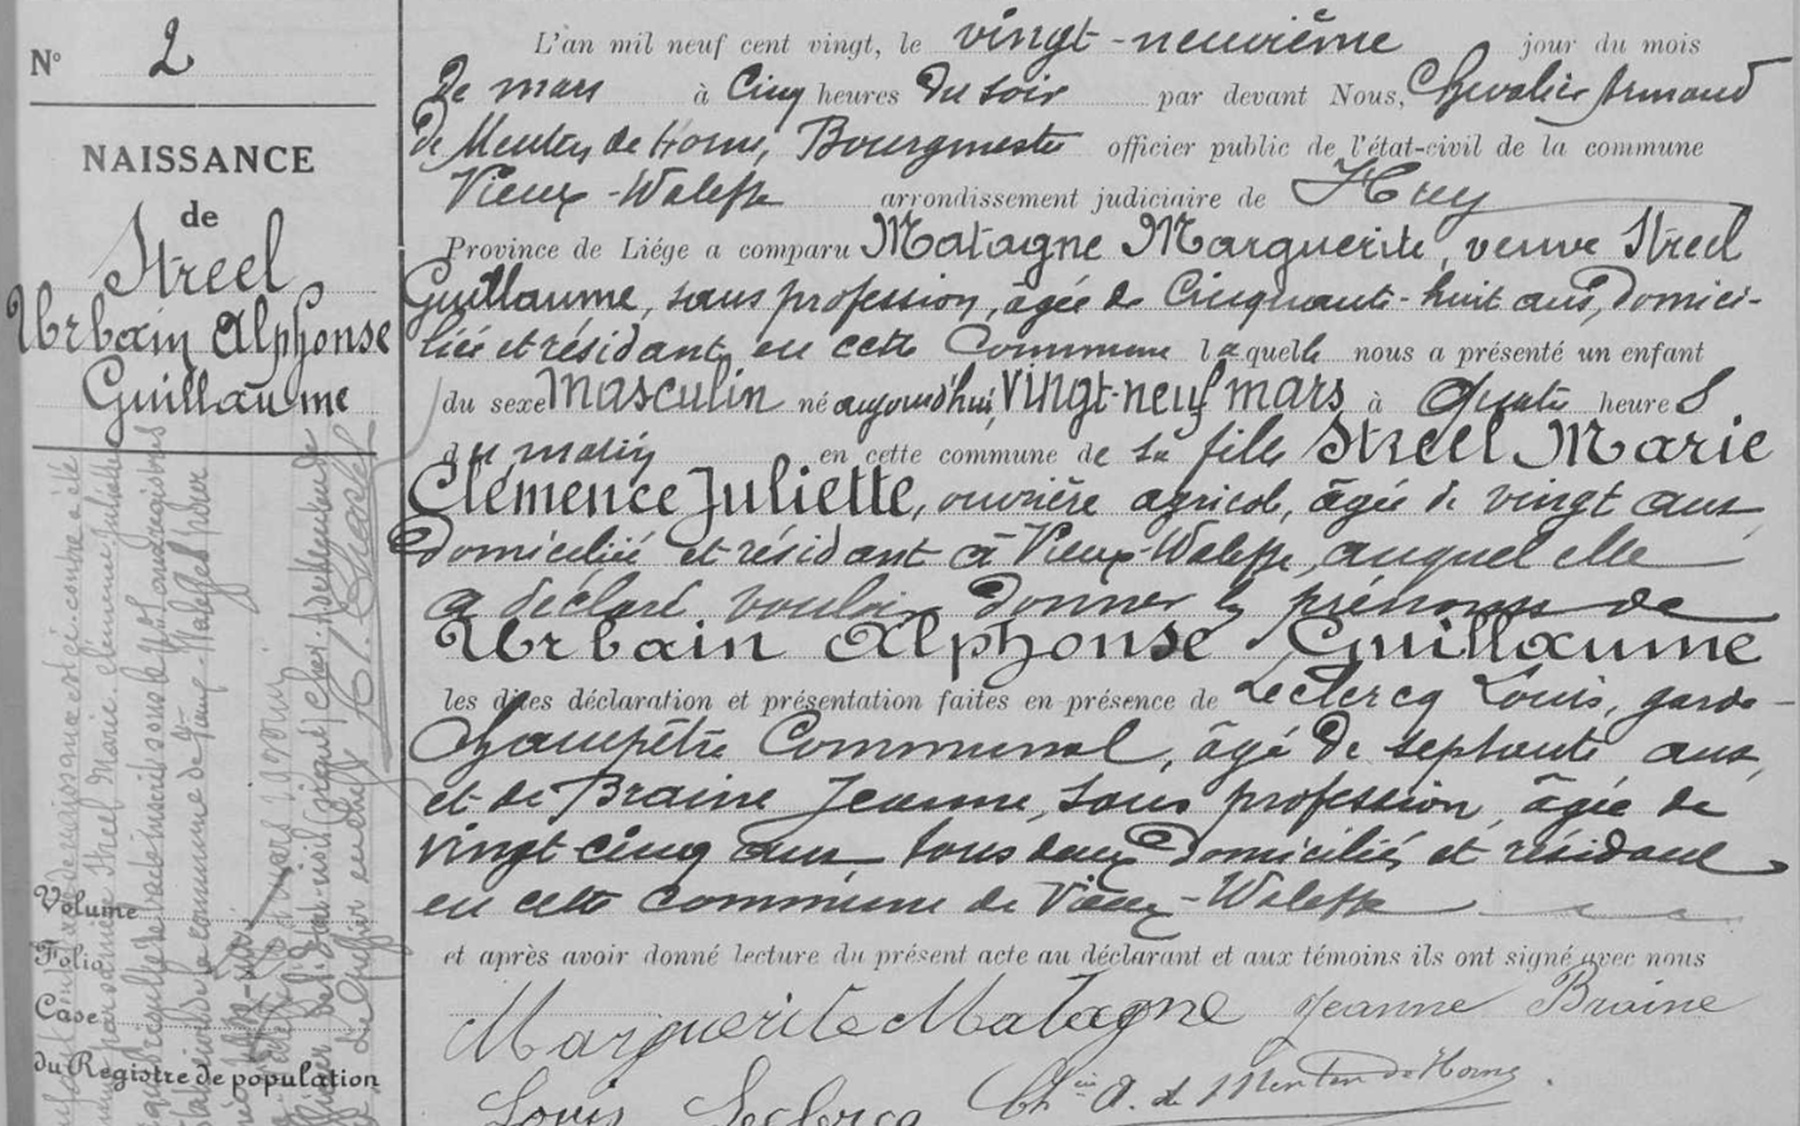 N° 2
NAISSANCE
de
Streel
Urbain Alphonse
Guillaume
Volume
Folio
Case
du Registre de population
L'an mil neuf cent vingt, le vingt-neuvième jour du mois
de mars à cinq heures du soir par devant Nous, Chevalier Armand
de Menten de Horne, Bourgmestre officier public de l'état-civil de la commune
Vieux-Waleffe arrondissement judiciaire de Huy
Province de Liége a comparu Matagne Marguerite, veuve Streel
Guillaume, sans profession, âgée de Cinquante-huit ans, domici-
liée et résidant en cette Commune laquelle nous a présenté un enfant
du sexe Masculin né aujourd'hui vingt-neuf mars à quatre heures
du matin en cette commune de sa fille Streel Marie
Clémence Juliette, ouvrière agricole, âgée de vingt ans
domiciliée et résidant à Vieux-Waleffe, auquel elle
a déclaré vouloir donner les prénoms de
Urbain Alphonse Guillaume
les dites déclaration et présentation faites en présence de Leclercq Louis, garde-
champêtre Communal, âgé de septante ans,
et de Braine Jeanne, sans profession, âgée de
vingt-cinq ans tous deux domiciliés et résidant
en cette commune de Vieux-Waleffe
et après avoir donné lecture du présent acte au déclarant et aux témoins ils ont signé avec nous
Marguerite Matagne Jeanne Braine
Louis Leclercq Ch<sup>ier</sup> A. de Menten de Horne